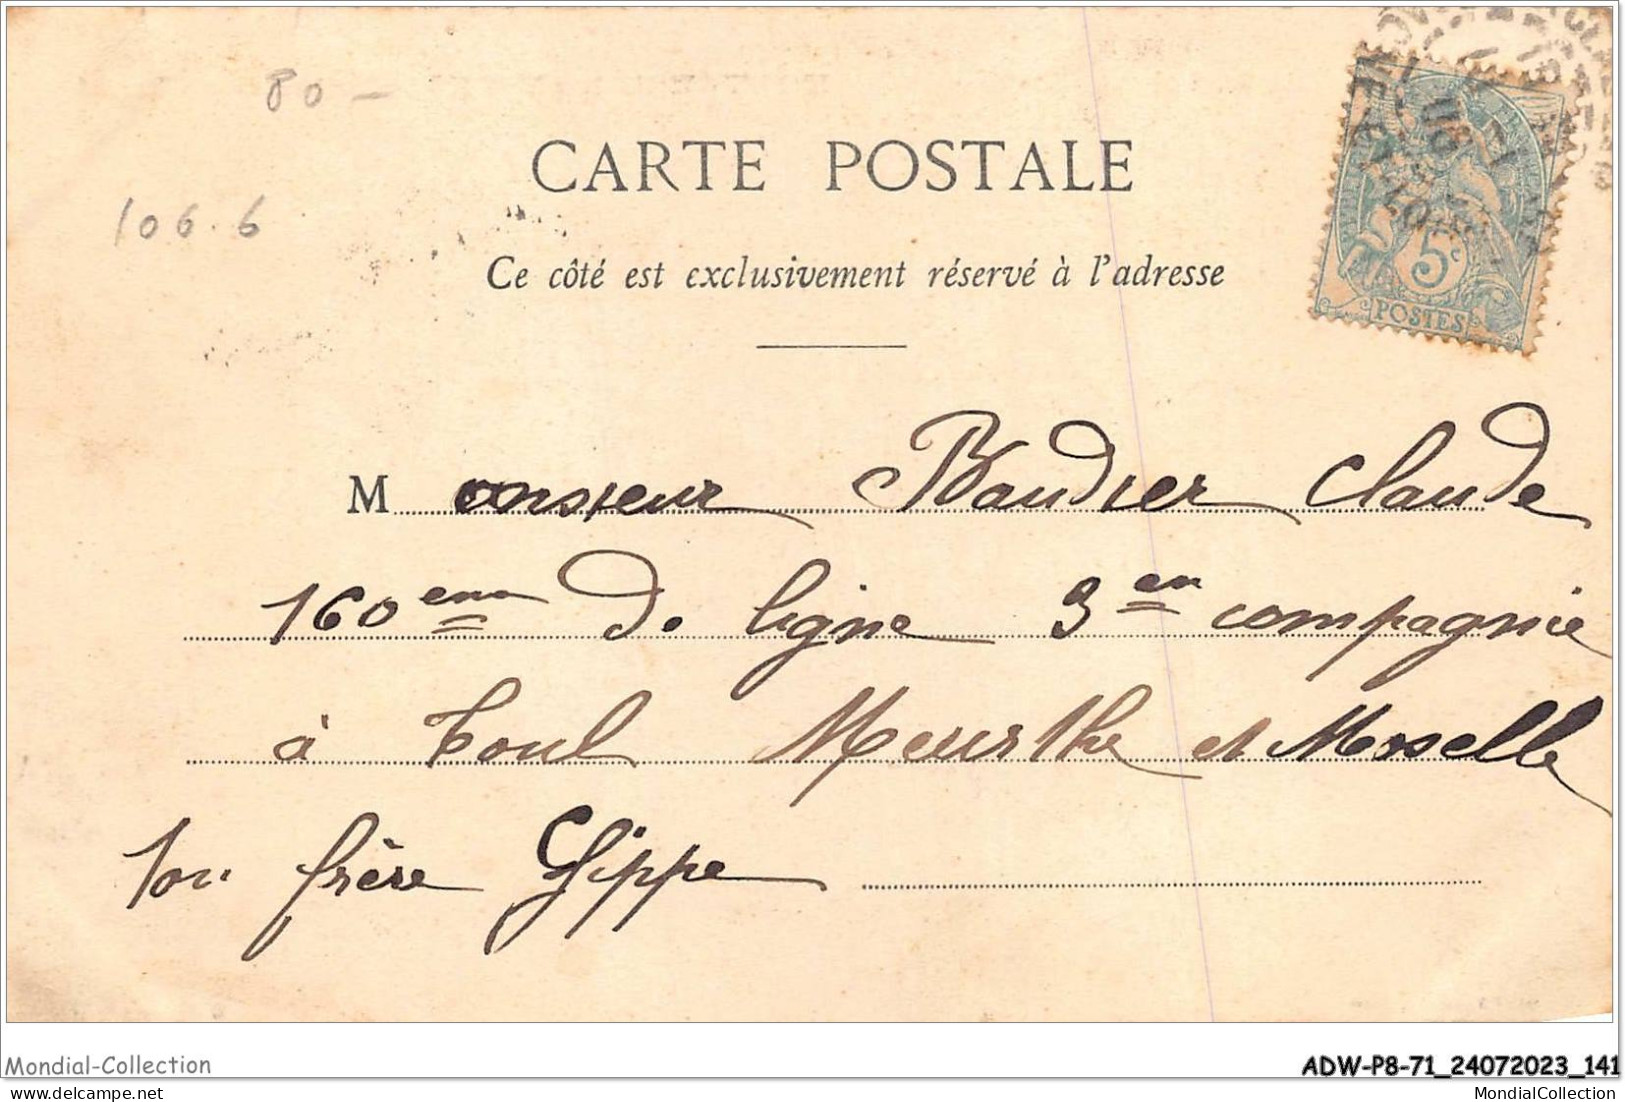 80 -
CARTE POSTALE
106.6
Ce côté est exclusivement réservé à l'adresse
5c
POSTES
Monsieur Baudier Claude
160eme de ligne 3em compagnie
à Toul Meurthe et Moselle
Ton frère
Mondial-Collection
ADW-P8-71_24072023_141
MondialCollection